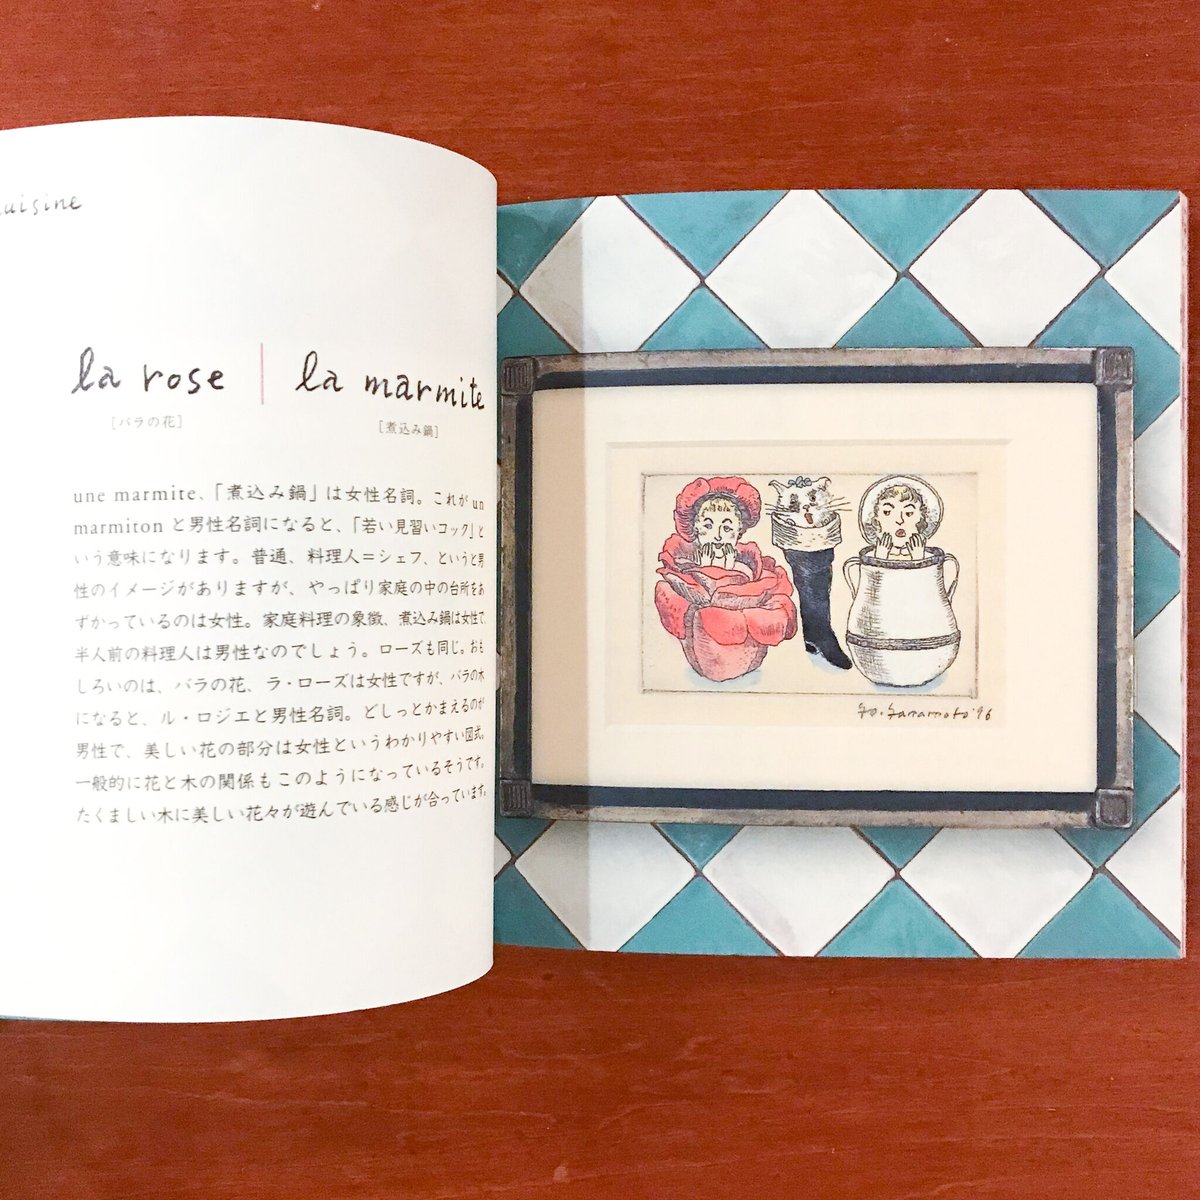 uisine
la rose | la marmite
[バラの花] [煮込み鍋]
une marmite、「煮込み鍋」は女性名詞。これが un
marmiton と男性名詞になると、「若い見習いコック」と
いう意味になります。普通、料理人=シェフ、というと男
性のイメージがありますが、やっぱり家庭の中の台所をあ
ずかっているのは女性。家庭料理の象徴、煮込み鍋は女性で、
半人前の料理人は男性なのでしょう。ローズも同じ。おも
しろいのは、バラの花、ラ・ローズは女性ですが、バラの木
になると、ル・ロジエと男性名詞。どしっとかまえるのが
男性で、美しい花の部分は女性というわかりやすい図式。
一般的に花と木の関係もこのようになっているそうです。
たくましい木に美しい花々が遊んでいる感じが合っています。
Yo.Yamamoto '96